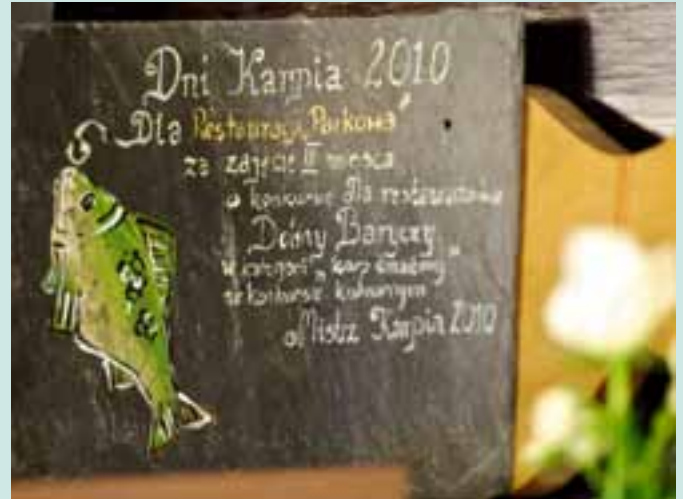 Dni Karpia 2010
Dla Restauracji „Parkowa”
za zdjęcie II miejsca
w konkursie dla restauratorów
Doliny Baryczy
w kategorii „karp smażony”
w konkursie kulinarnym
Mistrz Karpia 2010